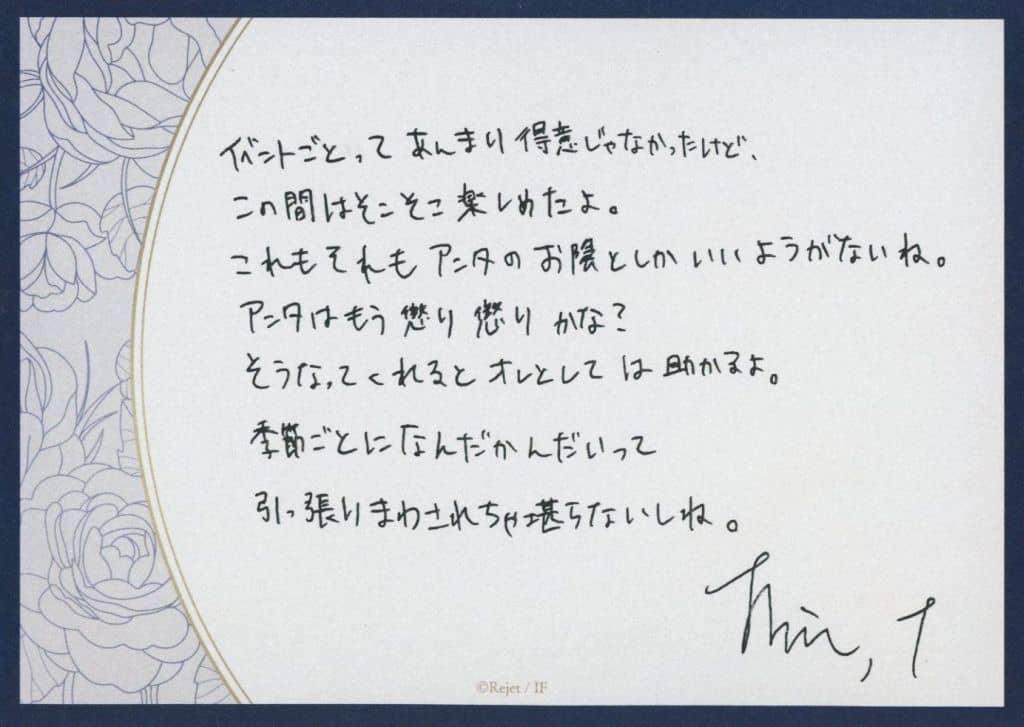 イベントごとってあんまり得意じゃなかったけど、
この間はそこそこ楽しめたよ。
これもそれもアンタのお陰としかいいようがないね。
アンタはもう懲り懲りかな?
そうなってくれるとオレとしては助かるよ。
季節ごとになんだかんだいって
引っ張りまわされちゃ堪らないしね。
Shin, T
©Rejet / IF